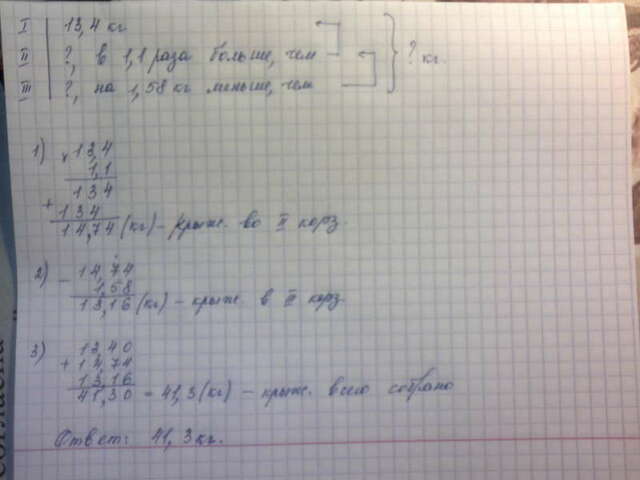 I 13,4 кг
II ?, в 1,1 раза больше, чем
III ?, на 1,58 кг меньше, чем
? кг.
1) × 13,4
1,1
134
+ 134
14,74 (кг) – крыж. во II корз.
2) – 14,74
1,58
13,16 (кг) – крыж. в III корз.
3) 13,40
+ 14,74
13,16
41,30 = 41,3 (кг) – крыж. всего собрано
Ответ: 41,3 кг.